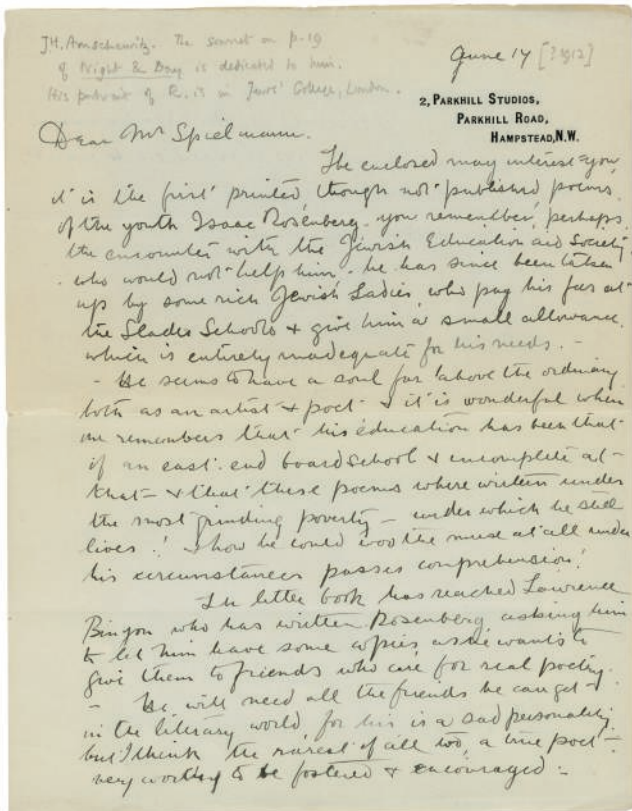 J.H. Amschewitz. The sonnet on p.19
of Night & Day is dedicated to him.
His portrait of R. is in Jews' College, London.
June 14 [? 1912]
2, PARKHILL STUDIOS,
PARKHILL ROAD,
HAMPSTEAD, N.W.
Dear Mr Spielmann.
The enclosed may interest you
it is the first printed, though not published, poems
of the youth Isaac Rosenberg. you remember, perhaps,
the encounter with the Jewish Education aid Society
who would not help him. he has since been taken
up by some rich Jewish Ladies, who pay his fees at
the Slades Schools & give him a small allowance,
which is entirely inadequate for his needs. -
- He seems to have a soul far above the ordinary
both as an artist & poet & it is wonderful when
one remembers that his education has been that
of an east end board school & incomplete at
that - & that these poems where written under
the most grinding poverty - under which he still
lives! & how he could woo the muse at all under
his circumstances passes comprehension!
The little book has reached Lawrence
Binyon who has written Rosenberg asking him
to let him have some copies, as he wants to
give them to friends who care for real poetry.
- He will need all the friends he can get
in the literary world, for his is a sad personality,
but I think the rarest of all too, a true poet -
very worthy to be fostered & encouraged -